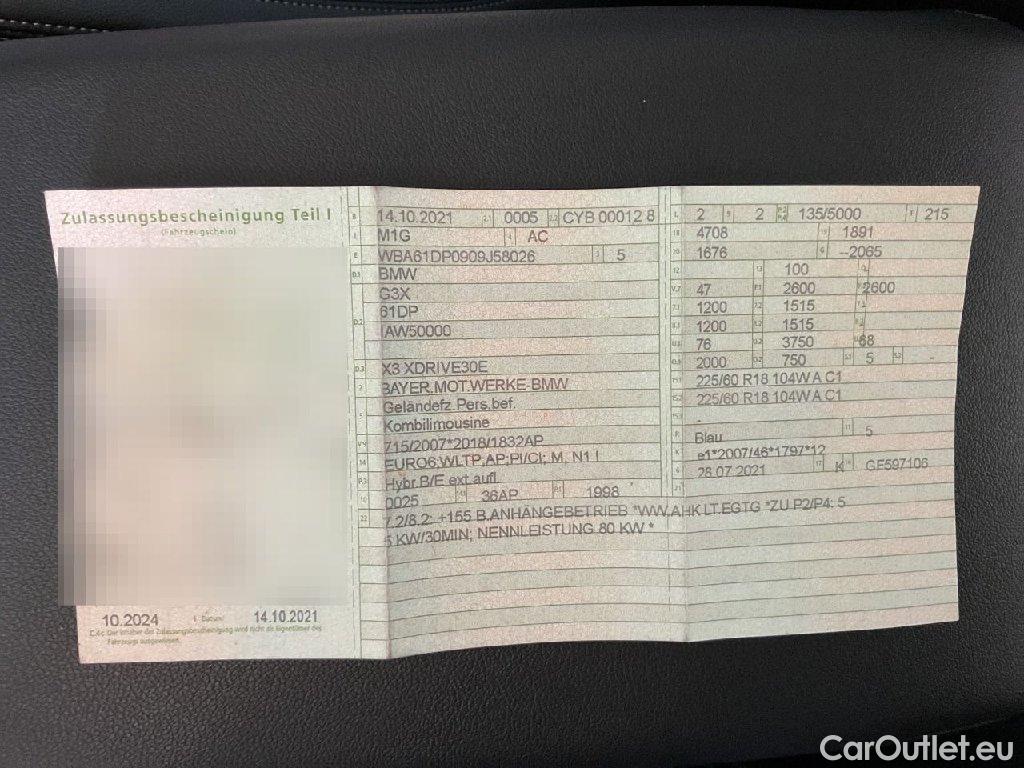 Zulassungsbescheinigung Teil I
(Fahrzeugschein)
10.2024 I Datum 14.10.2021
C.4c Der Inhaber der Zulassungsbescheinigung wird nicht als Eigentümer des
Fahrzeugs ausgewiesen.
B 14.10.2021 2.1 0005 2.2 CYB 00012 8
J M1G 4 AC
E WBA61DP0909J58026 3 5
D.1 BMW
G3X
D.2 61DP
IAW50000
D.3 X3 XDRIVE30E
2 BAYER.MOT.WERKE-BMW
5 Geländefz.Pers.bef.
Kombilimousine
V.9 715/2007*2018/1832AP
14 EURO6;WLTP;AP;PI/CI; M, N1 I
P.3 Hybr.B/E ext.aufl
10 0025 14.1 36AP P.1 1998
22 7.2/8.2: +155 B.ANHÄNGEBETRIEB *WW.AHK LT.EGTG *ZU P2/P4: 5
5 KW/30MIN; NENNLEISTUNG 80 KW *
L 2 9 2 135/5000 T 215
18 4708 19 1891
20 1676 G –2065
12 13 100
V.7 47 F.1 2600 F.2 2600
7.1 1200 7.2 1515
8.1 1200 8.2 1515
U.1 76 U.2 3750 U.3 68
O.1 2000 O.2 750 S.1 5 S.2 -
15.1 225/60 R18 104W A C1
15.2 225/60 R18 104W A C1
15.3 -
R Blau 11 5
K e1*2007/46*1797*12
6 28.07.2021 17 K 16 GF597106
21
CarOutlet.eu